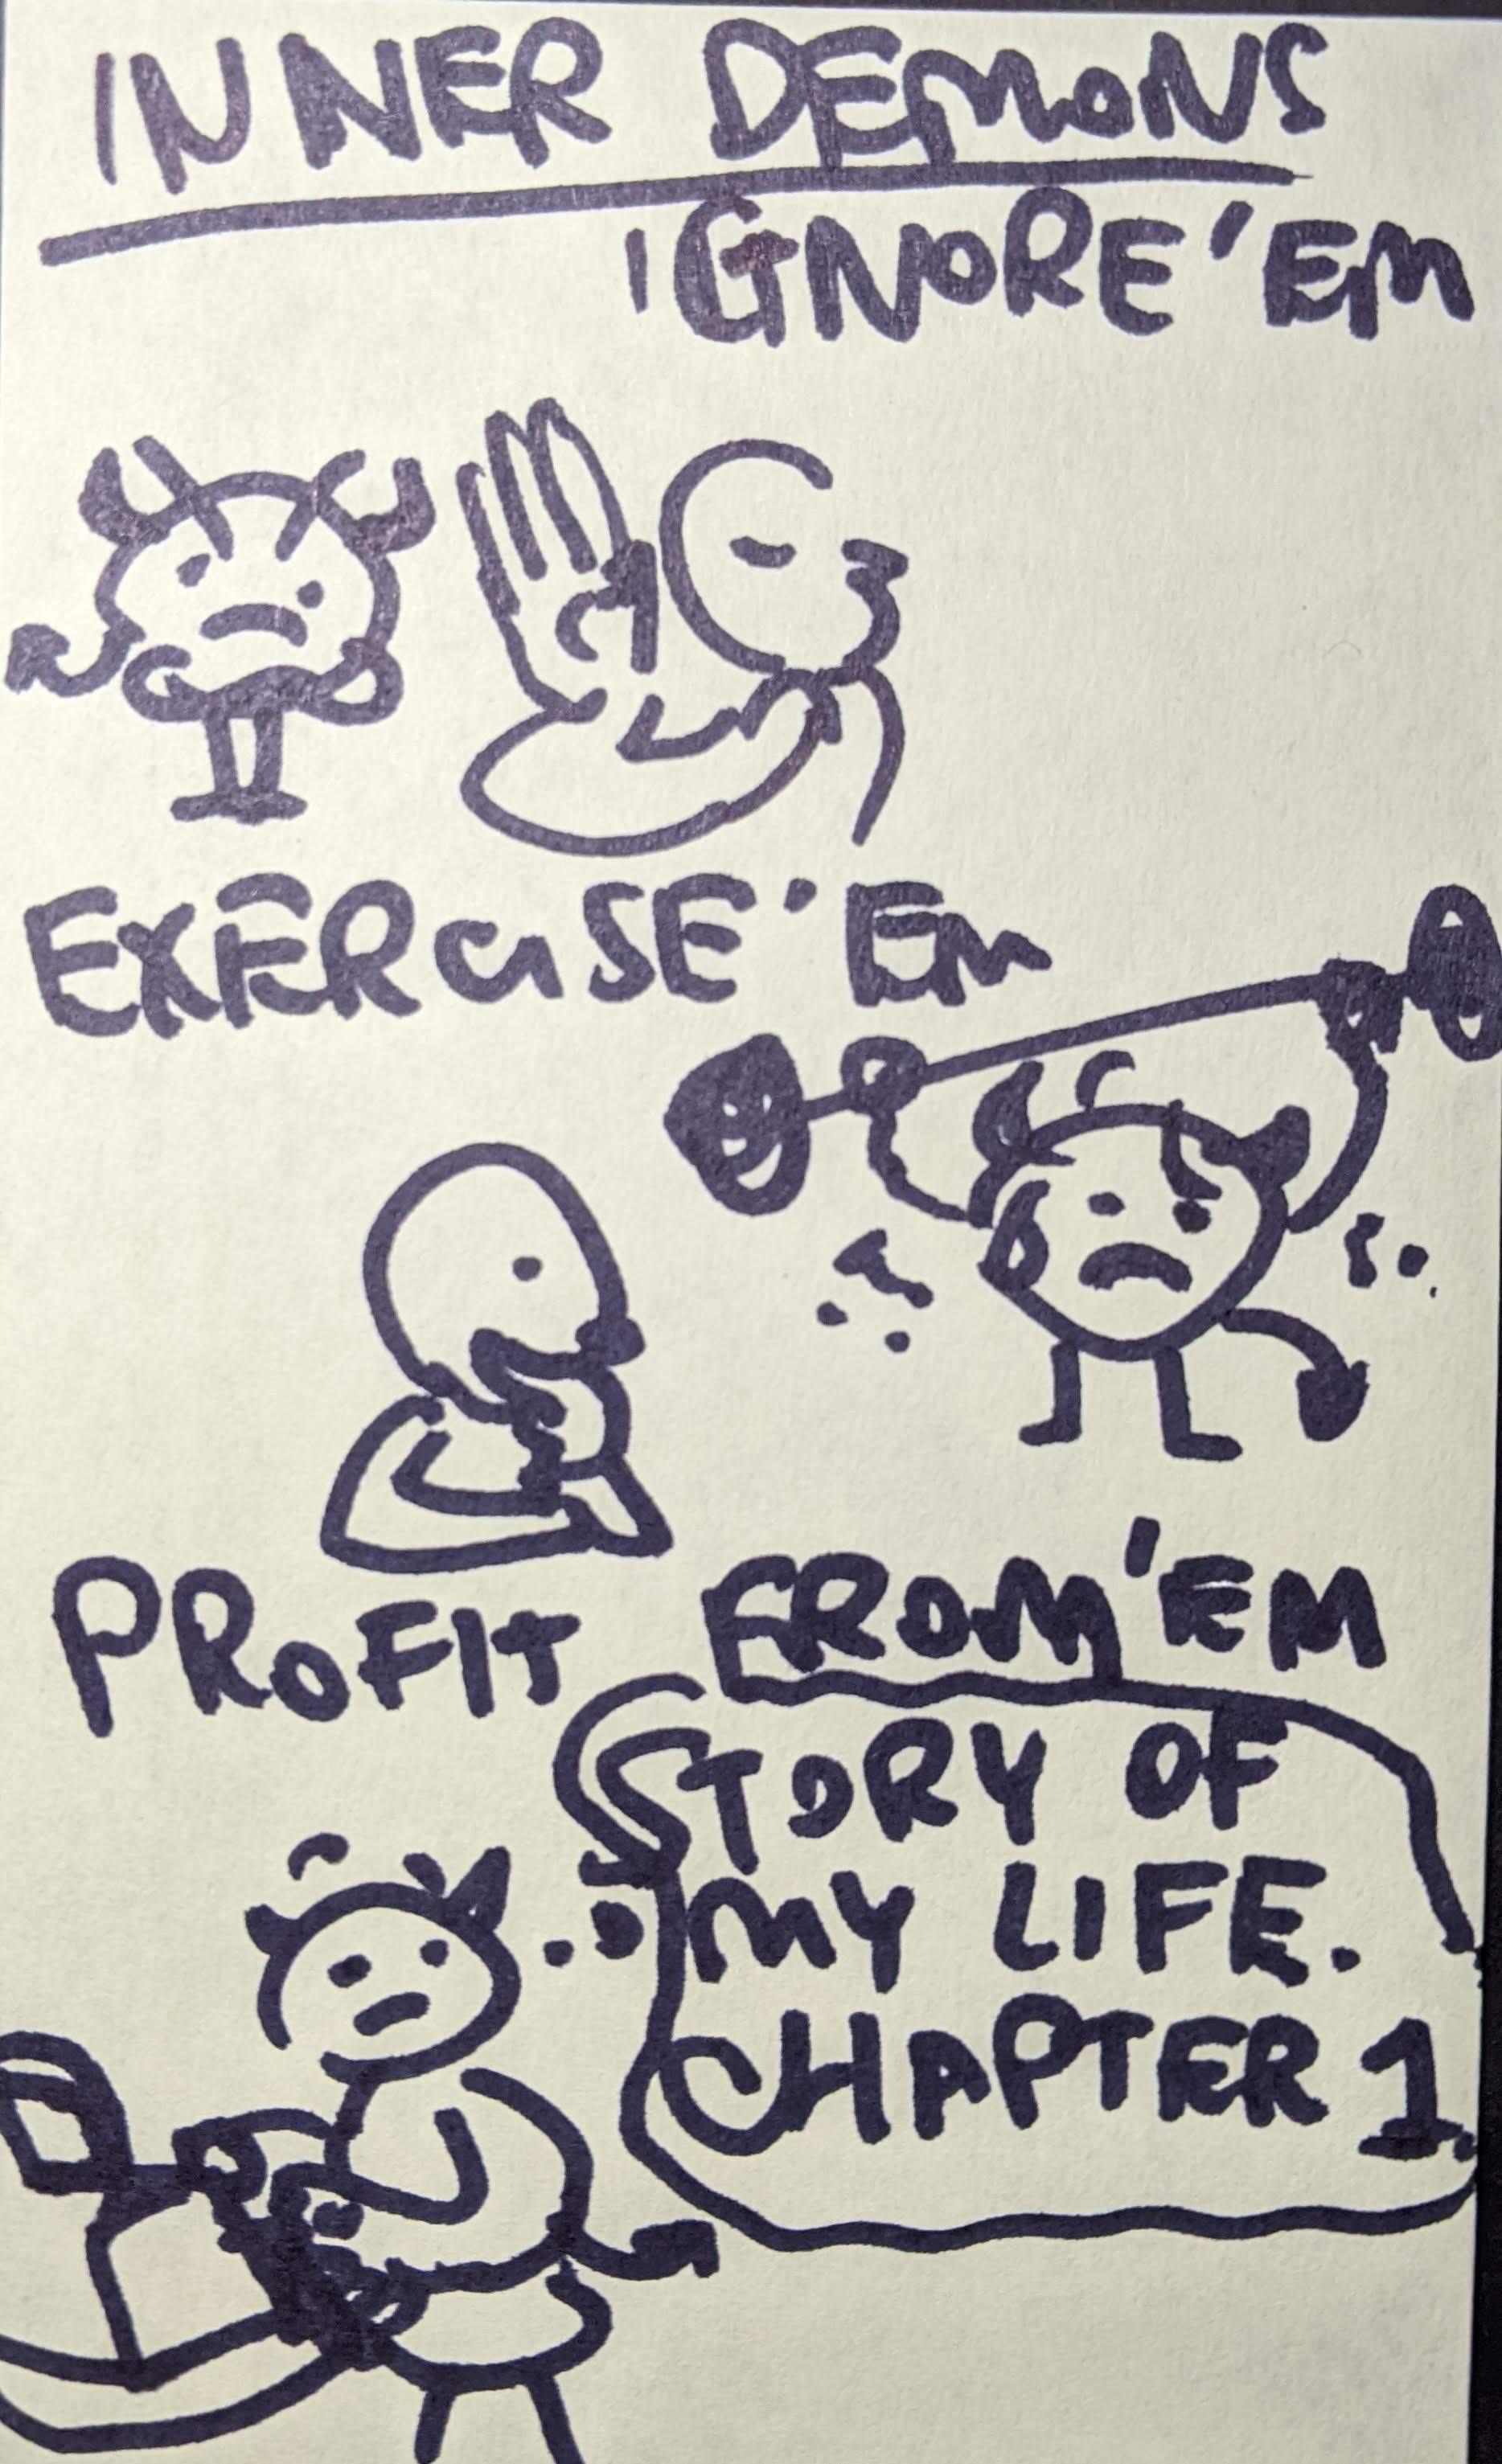 INNER DEMONS
IGNORE 'EM
EXERCISE 'EM
PROFIT FROM 'EM
STORY OF
MY LIFE.
CHAPTER 1.